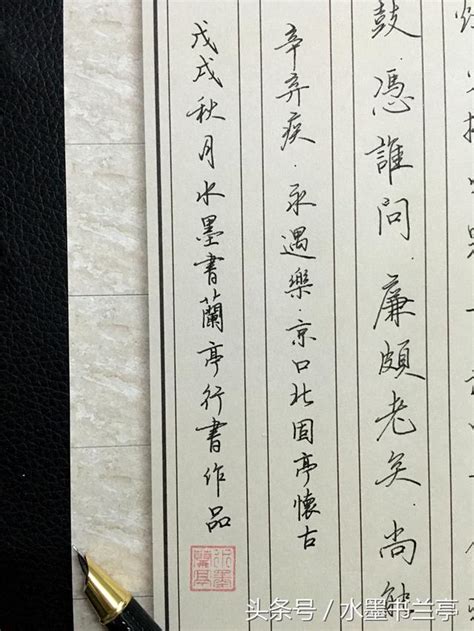 鼓.憑誰問.廉頗老矣.尚能
辛弃疾.永遇樂.京口北固亭懷古
戊戌秋月水墨書蘭亭行書作品
头条号 / 水墨书兰亭